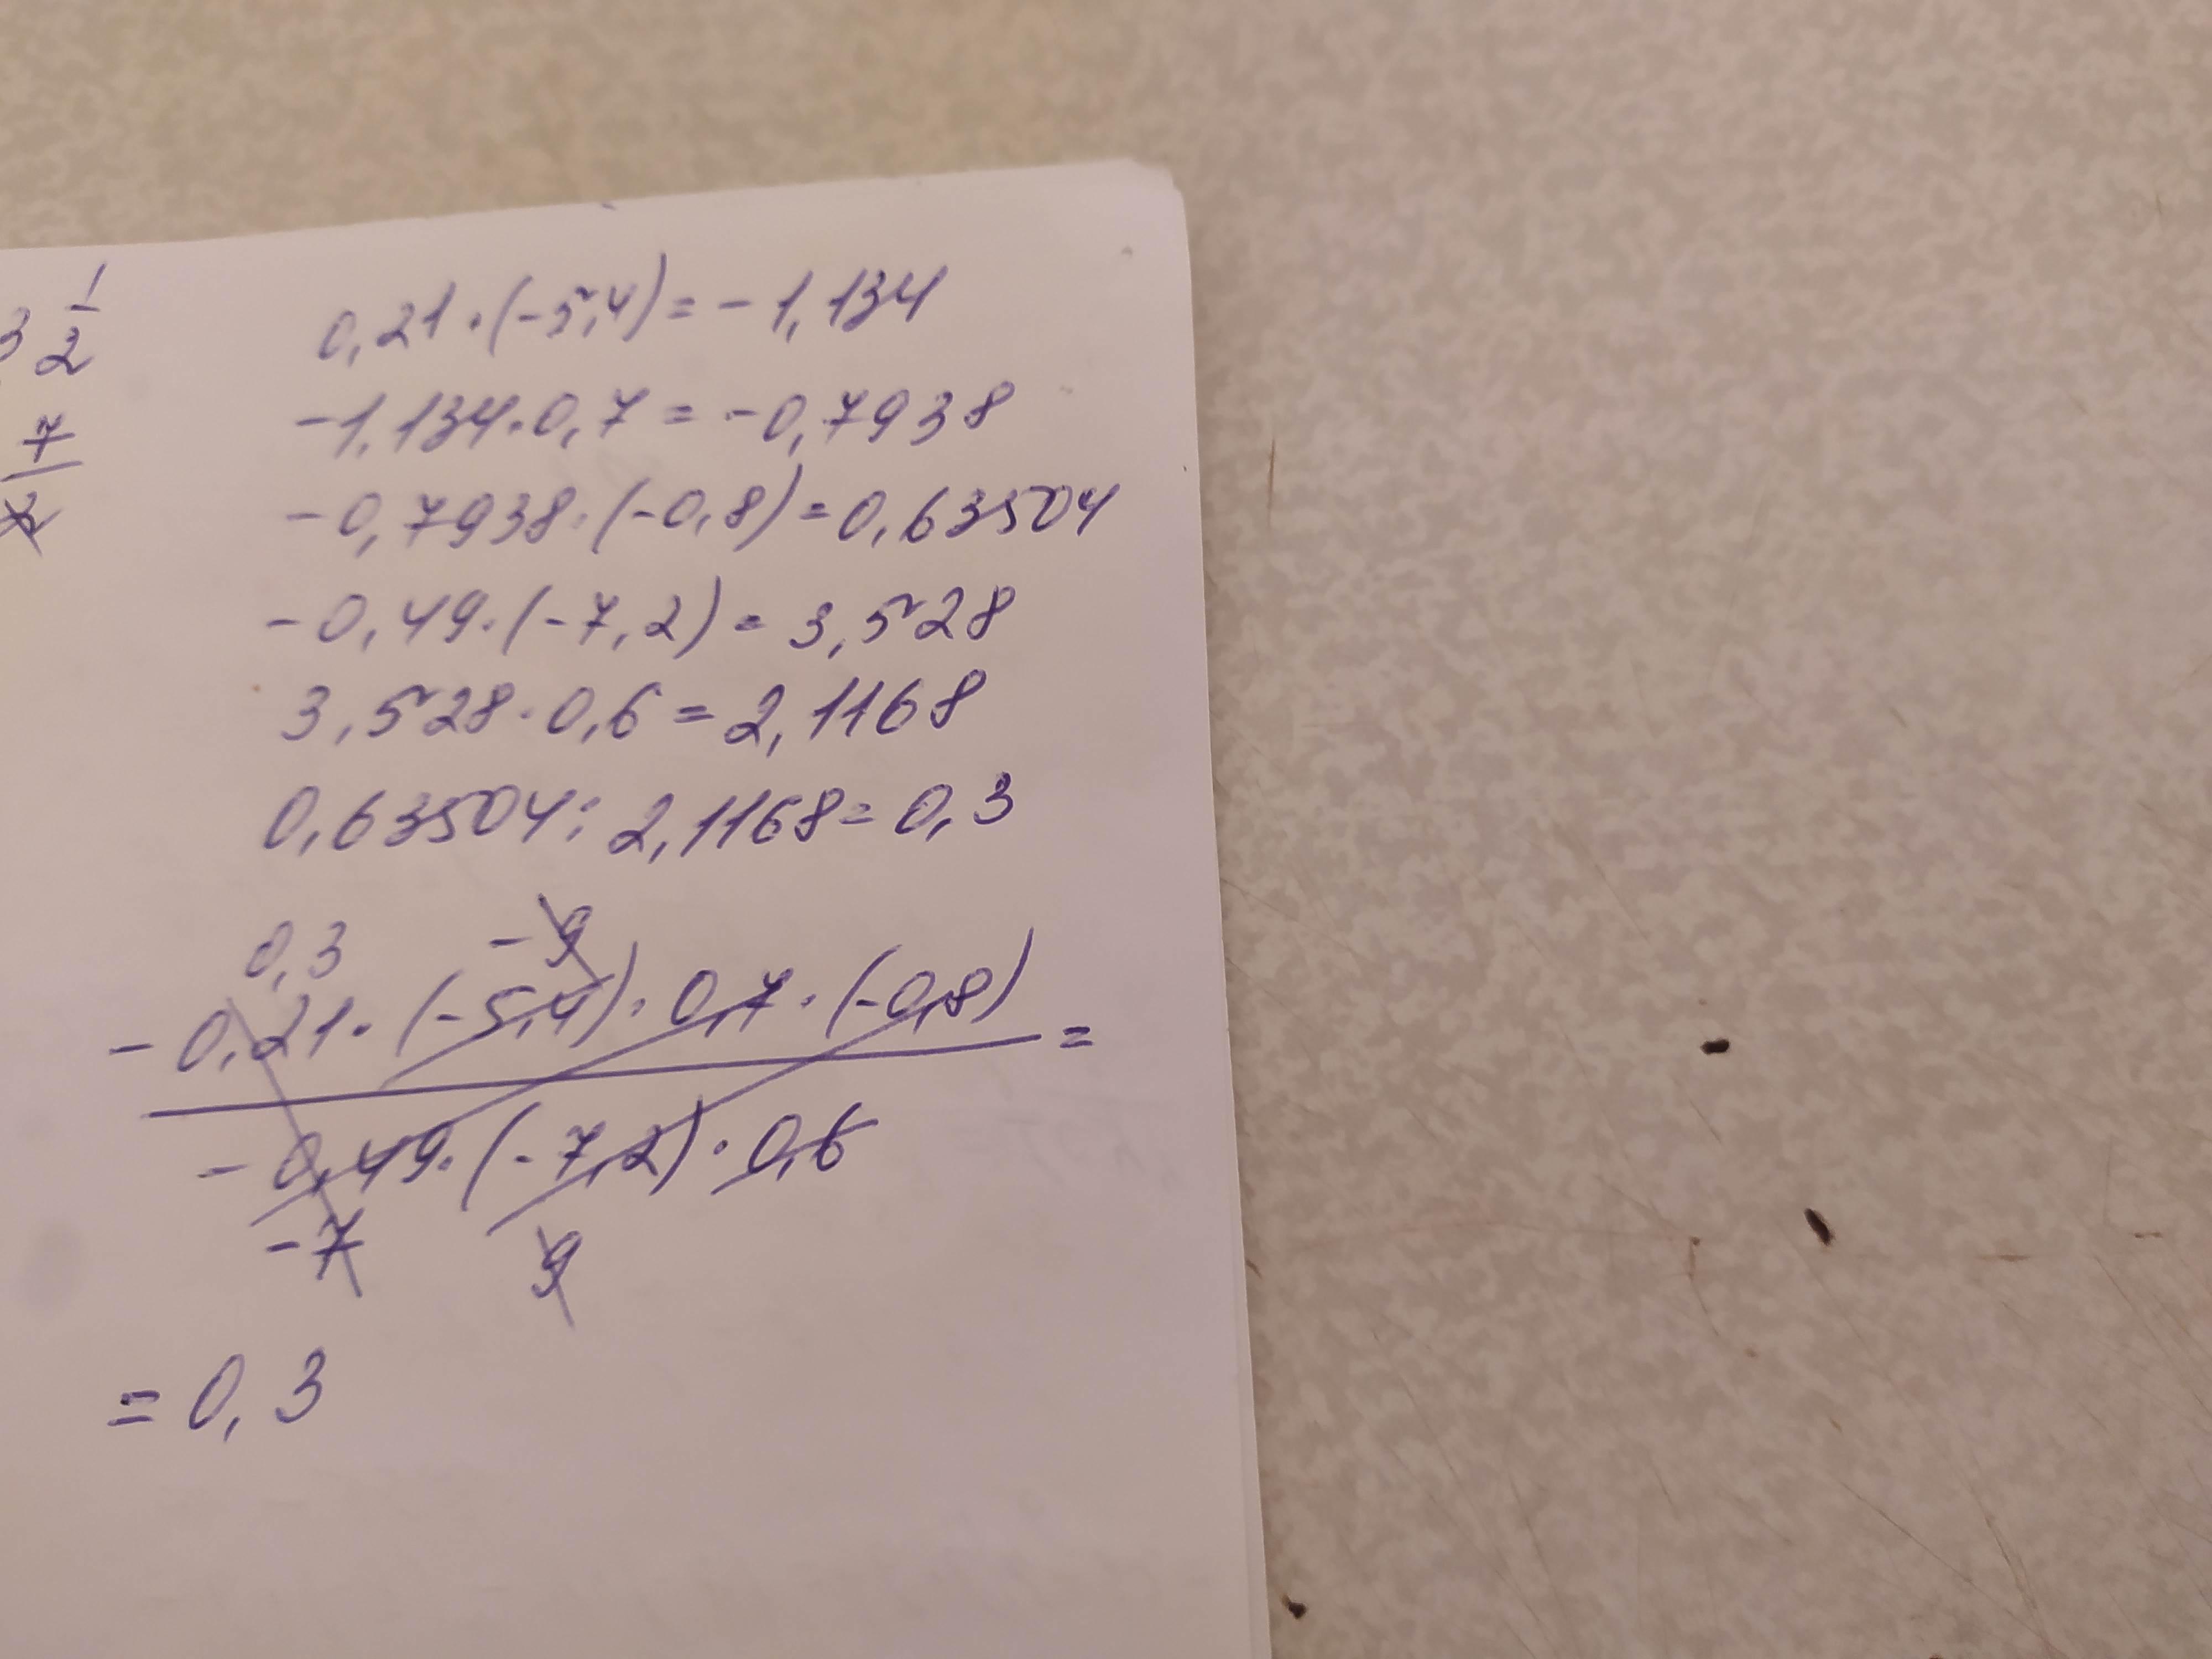 3 1/2
7/2
0,21·(-5,4)=-1,134
-1,134·0,7=-0,7938
-0,7938·(-0,8)=0,63504
-0,49·(-7,2)=3,528
3,528·0,6=2,1168
0,63504:2,1168=0,3
0,3 -9
-0,21·(-5,4)·0,7·(-0,8) =
-0,49·(-7,2)·0,6
-7 9
=0,3